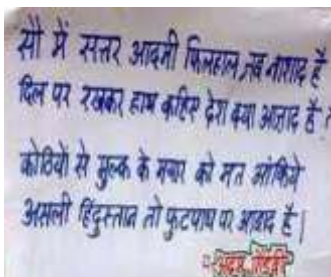 सौ में सत्तर आदमी फिलहाल जब नाशाद है
दिल पर रखकर हाथ कहिए देश क्या आजाद है ?
कोठियों से मुल्क के मयार को मत आंकिये
असली हिंदुस्तान तो फुटपाथ पर आबाद है |
अदम गोंडवी